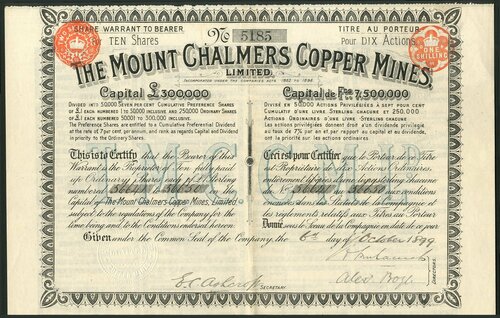 SHARE WARRANT TO BEARER
TITRE AU PORTEUR
TEN Shares
No 5185
Pour DIX Actions
ONE SHILLING
THE MOUNT CHALMERS COPPER MINES,
LIMITED.
INCORPORATED UNDER THE COMPANIES ACTS, 1862 TO 1898.
Capital £300000
Capital de Fcs 7,500000
DIVIDED INTO 50,000 SEVEN PER CENT CUMULATIVE PREFERENCE SHARES
OF £1 EACH NUMBERED 1 TO 50000 INCLUSIVE AND 250,000 ORDINARY SHARES
OF £1 EACH NUMBERED 50001 TO 300,000 INCLUSIVE.
The Preference Shares are entitled to a Cumulative Preferential Dividend
at the rate of 7 per cent. per annum, and rank as regards Capital and Dividend
in priority to the Ordinary Shares.
DIVISÉ EN 50,000 ACTIONS PRIVILÉGIÉES A SEPT POUR CENT
CUMULATIF D'UNE LIVRE STERLING CHACUNE ET 250,000
ACTIONS ORDINAIRES D'UNE LIVRE STERLING CHACUNE.
Les actions privilégiées donnent droit à un dividende privilégié
au taux de 7% par an et par rapport au capital et au dividende,
ont la priorité sur les actions ordinaires.
This is to Certify that the Bearer of this
Warrant is the Proprietor of Ten fully paid
up Ordinary Shares of £1 Sterling
numbered to in the
Capital of The Mount Chalmers Copper Mines, Limited
subject to the regulations of the Company for the
time being and to the Conditions endorsed hereon.
Ceci est pour Certifier que le Porteur de ce Titre
est Propriétaire de dix Actions Ordinaires,
entièrement libérées d'une Livre sterling chacune
du No au aux conditions
dans les Statuts de la Compagnie et
les règlements relatifs aux Titres au Porteur
Donné sous le Sceau de la Compagnie en date de ce jour
Given under the Common Seal of the Company, the 6th day of October 1899
E.C. Ashcroft
SECRETARY.
DIRECTORS.